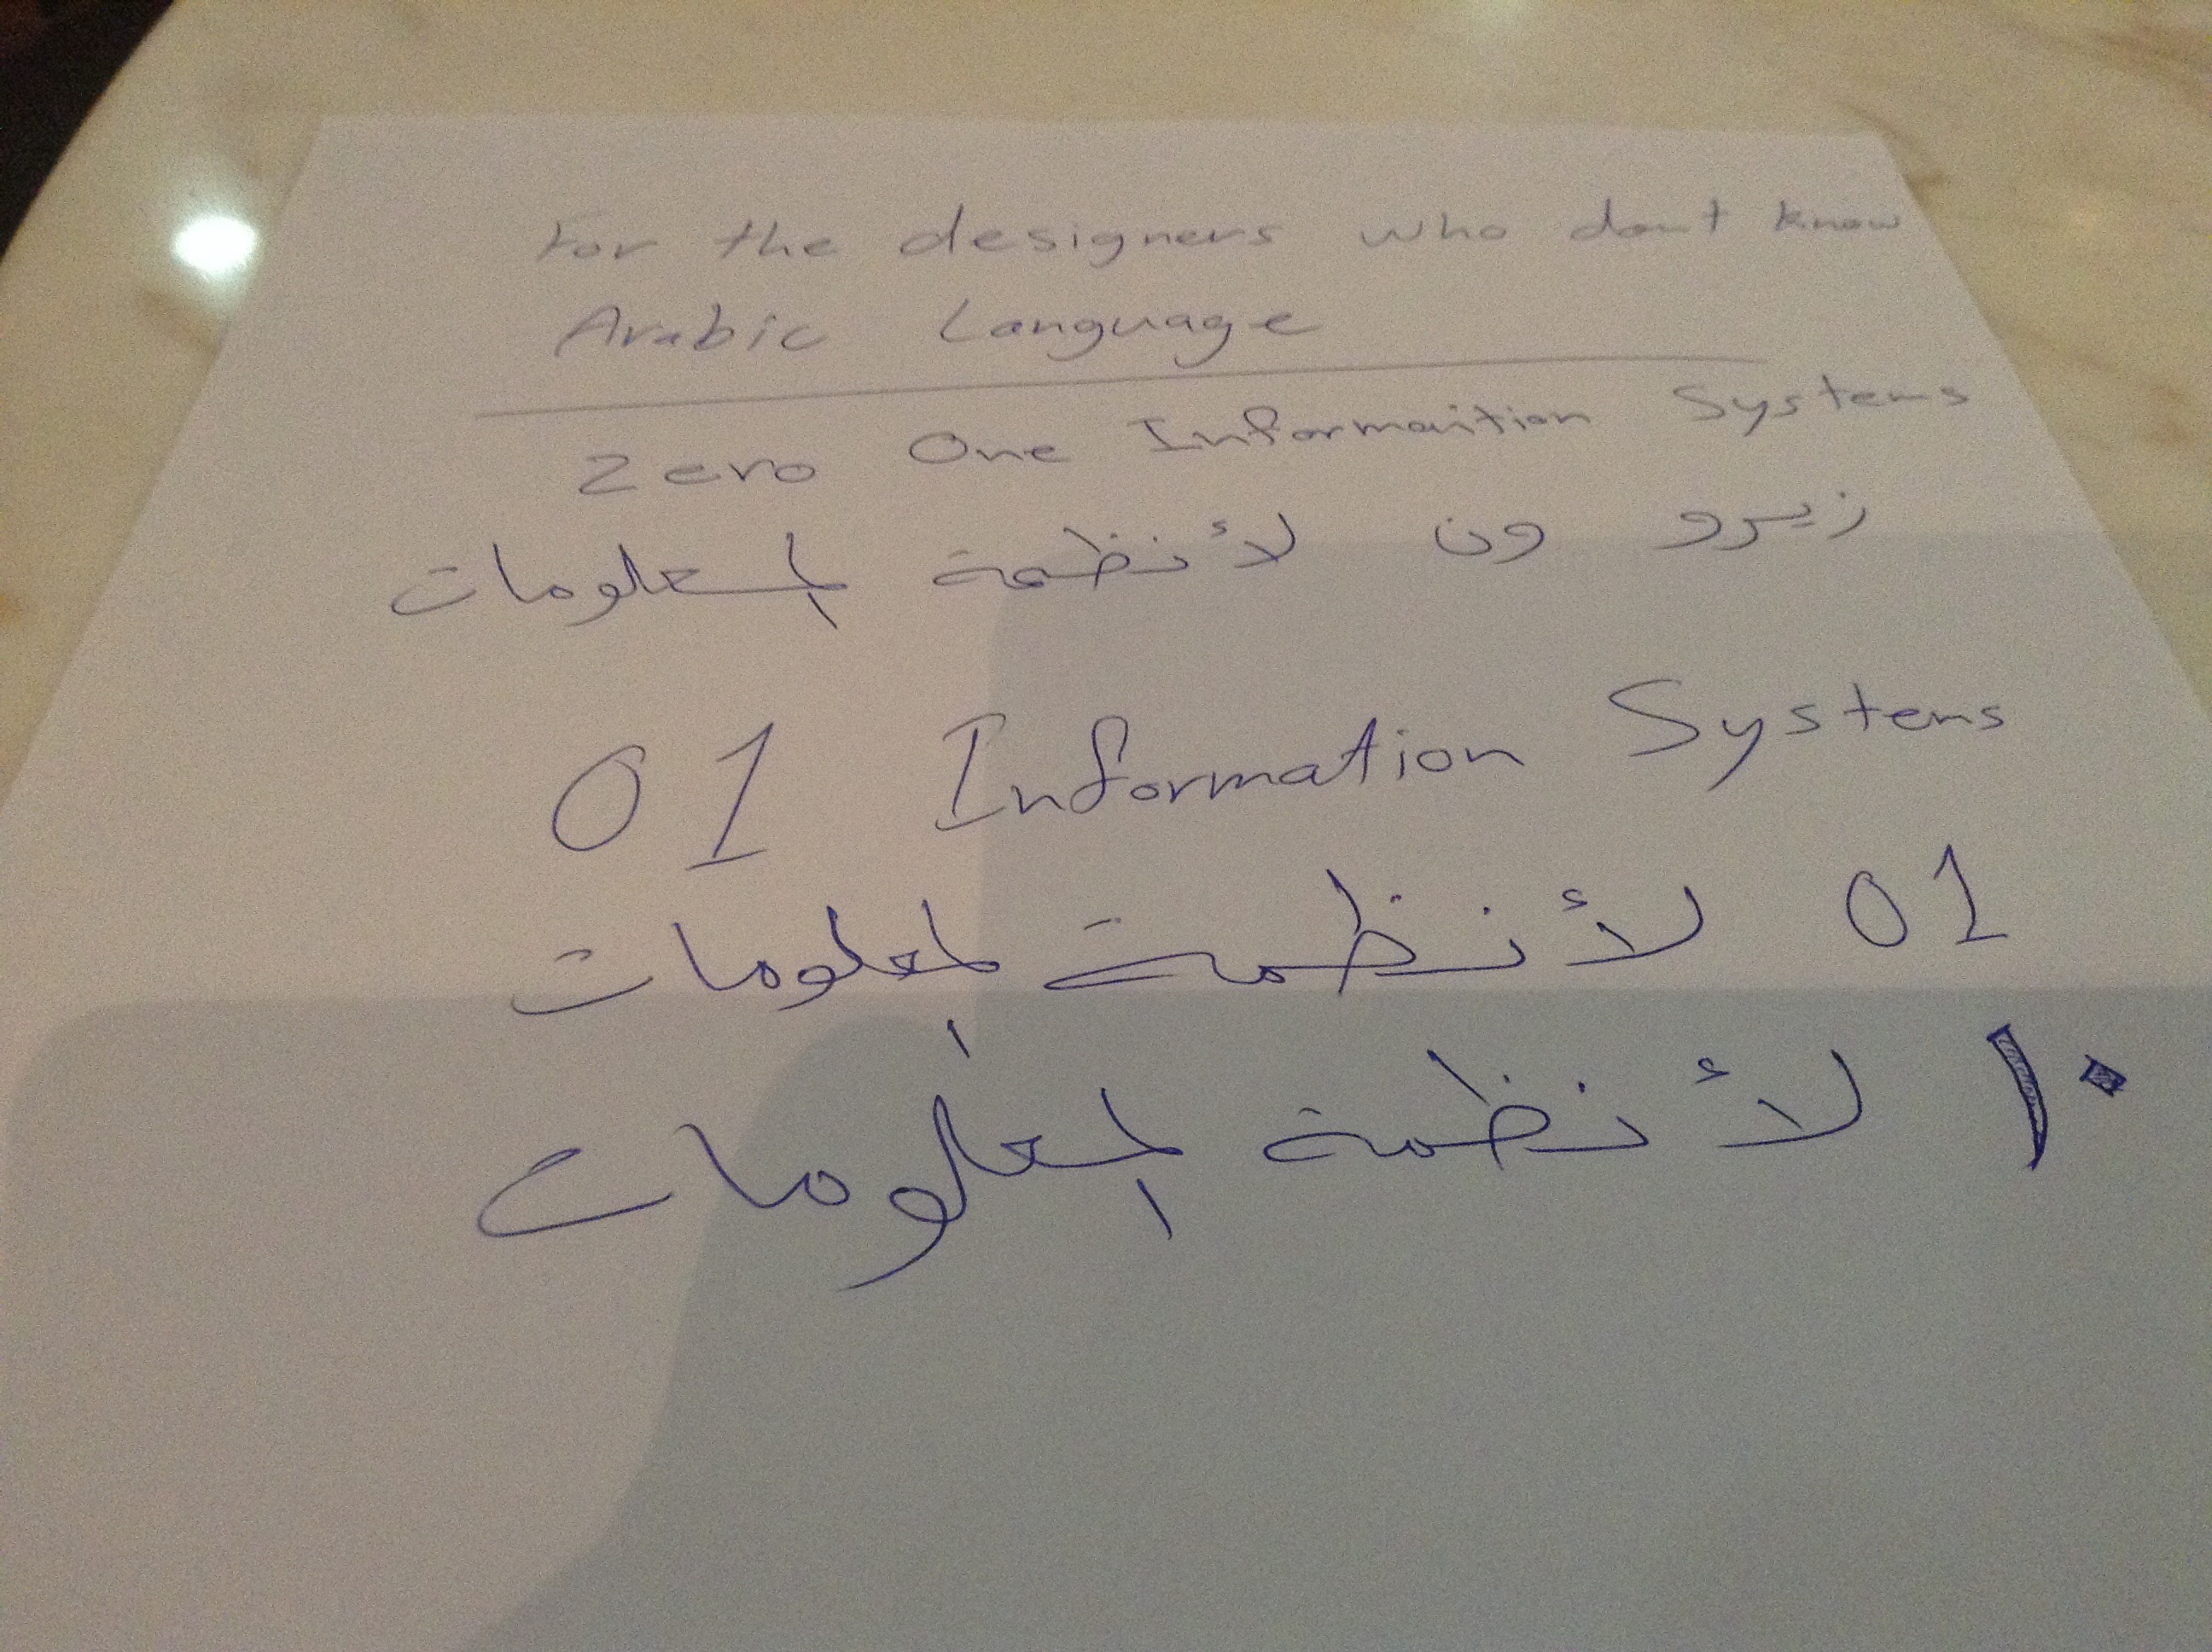 For the designers who dont know
Arabic Language
Zero One Informaition Systems
زيرو ون لأنظمة المعلومات
01 Information Systems
01 لأنظمة المعلومات
٠١ لأنظمة المعلومات